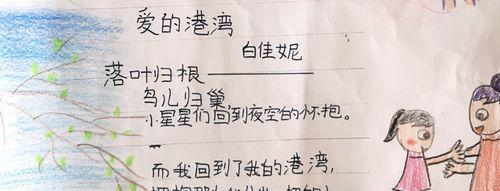 爱的港湾
白佳妮
落叶归根
鸟儿归巢
小星星们回到夜空的怀抱。
而我回到了我的港湾，